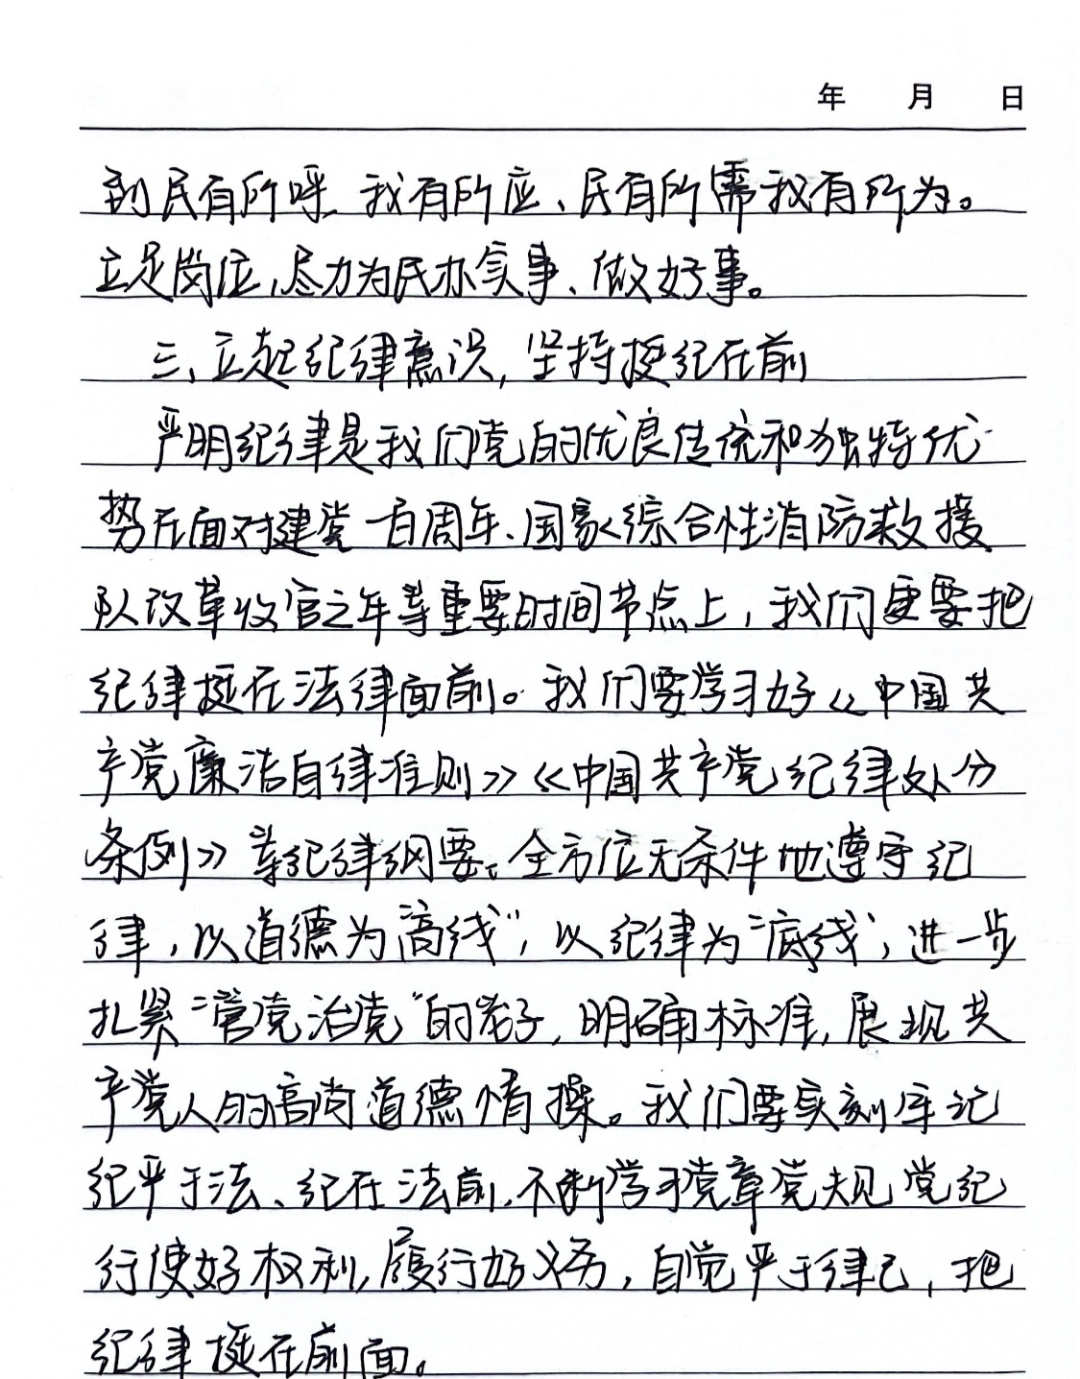 年 月 日
到民有所呼、我有所应、民有所需我有所为。
立足岗位,尽力为民办实事、做好事。
三、立起纪律意识,坚持挺纪在前
严明纪律是我们党的优良传统和独特优
势在面对建党一百周年、国家综合性消防救援
队改革收官之年等重要时间节点上,我们更要把
纪律挺在法律面前。我们要学习好《中国共
产党廉洁自律准则》《中国共产党纪律处分
条例》等纪律纲要。全方位无条件地遵守纪
律,以道德为“高线”,以纪律为“底线”,进一步
扎紧“管党治党”的笼子,明确标准,展现共
产党人的高尚道德情操。我们要实刻牢记
纪严于法、纪在法前,不断学习党章党规党纪
行使好权利,履行好义务,自觉严于律己,把
纪律挺在前面。